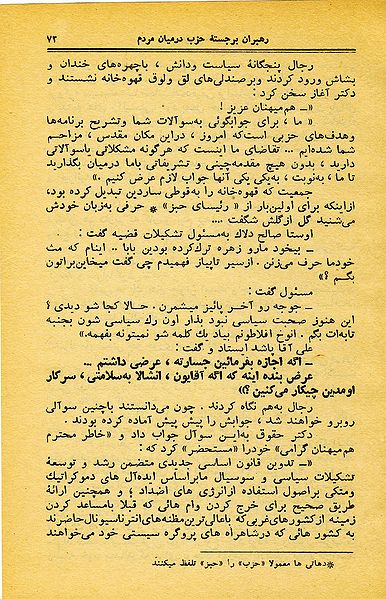 رهبران برجستهٔ حزب درمیان مردم ۷۳
رجال پنجگانهٔ سیاست ودانش ، باچهره‌های خندان و
بشاش ورود کردند وبرصندلی‌های لق ولوق قهوه‌خانه نشستند و
دکتر آغاز سخن کرد :
«ـ هم‌میهنان عزیز !
« ما ، برای جوابگوئی به‌سوآلات شما وتشریح برنامه‌ها
وهدف‌های حزبی است‌که امروز ، دراین مکان مقدس ، مزاحم
شما شده‌ایم ... تقاضای ما اینست که هرگونه مشکلاتی یاسوآلاتی
دارید ، بدون هیچ مقدمه‌چینی و تشریفاتی باما درمیان بگذارید
تا ما ، به‌نوبت ، به‌یکی یکی آنها جواب لازم عرض کنیم .»
جمعیت که قهوه‌خانه را به‌قوطی ساردین تبدیل کرده بود،
ازاینکه برای اولین‌بار از « رئیسای حبز» * حرفی به‌زبان خودش
می‌شنید گل ازگلش شگفت ....
اوستا صالح دلاك به‌مسئول تشکیلات قضیه گفت :
ـ بیخود مارو زهره ترك‌کرده بودین بابا .. اینام که مث
خودما حرف می‌زنن . ازسیر تاپیاز فهمیدم چی گفت میخاین‌براتون
بگم ؟»
مسئول گفت :
ـ جوجه رو آخر پائیز میشمرن . حالا کجا شو دیدی ؟
این هنوز صحبت سیاسی نبود بذار اون رك سیاسی شون بجنبه
تابه‌ات بگم . اونوخ افلاطونم بیاد یك کلمه شو نمیتونه بفهمه.»
علی آقا پاشد ایستاد و گفت :
ـ اگه اجازه بفرمائین جسارته ، عرضی داشتم ...
عرض بنده اینه که اگه آقایون ، انشالا به‌سلامتی ، سرکار
اومدین چیکار می‌کنین ؟»
رجال به‌هم نگاه کردند . چون می‌دانستند باچنین سوآلی
روبرو خواهند شد ، جوابش را پیش پیش آماده کرده بودند .
دکتر حقوق به‌این سوآل جواب داد و «خاطر محترم
هم‌میهنان گرامی» خودرا «مستحضر» کرد که :
«ـ تدوین قانون اساسی جدیدی متضمن رشد و توسعهٔ
تشکیلات سیاسی و سوسیال مابراساس ایده‌آل های دموکراتیك
ومتکی براصول استفاده ازانرژی های اضداد ؛ و همچنین ارائهٔ
طریق صحیح برای خرج کردن وام هائی که قبلا بامساعد کردن
زمینه ازکشورهای‌غربی‌که باعالی‌ترین مظنه‌های‌انترناسیونال‌حاضرند
به کشور هائی که درشاهراه های پروگره سیستی خود می‌خواهند
*دهاتی ها معمولا «حزب» را «حبز» تلفظ میکنند